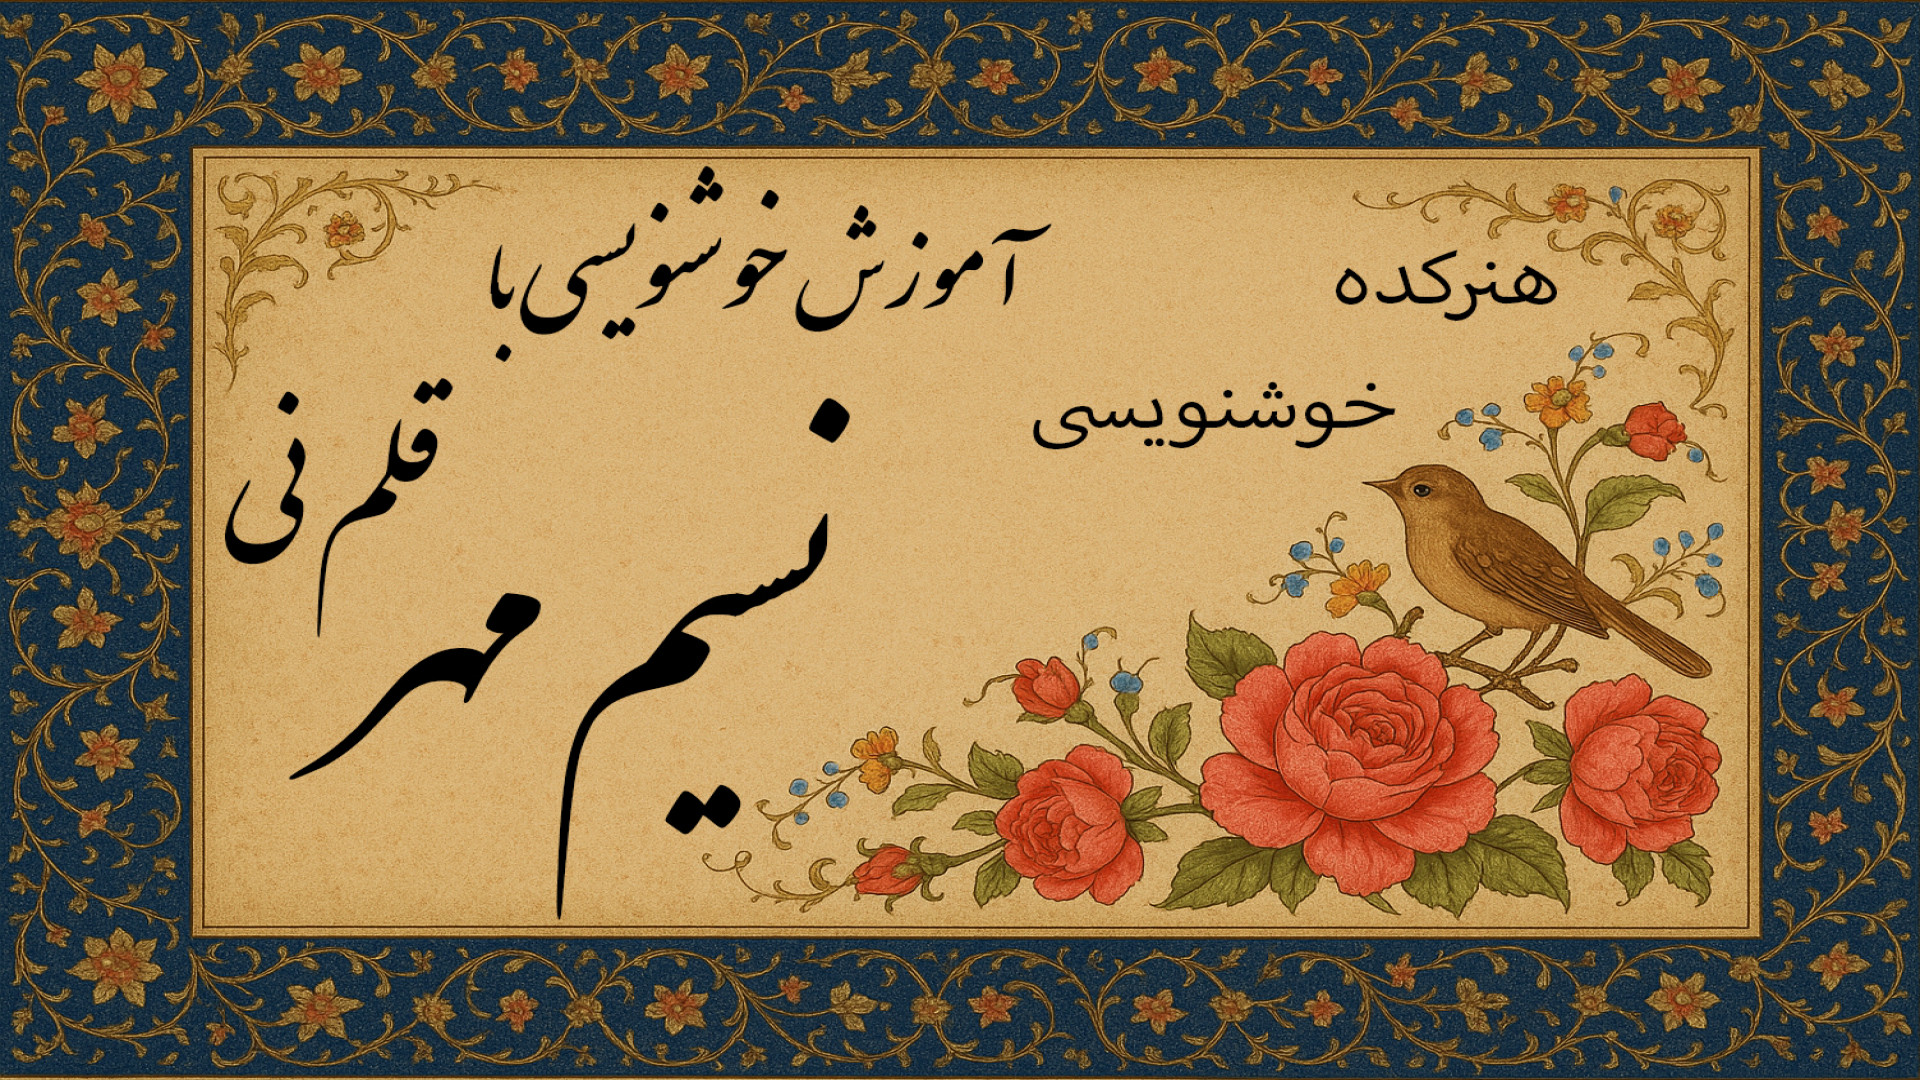 هنرکده
خوشنویسی
آموزش خوشنویسی با
قلم نی
نسیم مهر